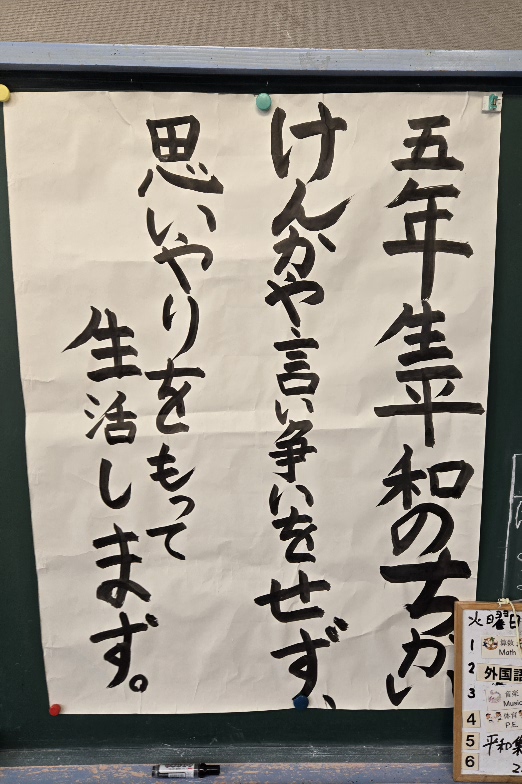 五年生平和のちかい
けんかや言い争いをせず、
思いやりをもって
生活しまず。
火曜日
1 算数
Math
2 外国語
3 音楽
Music
4 体育
P.E.
5 平和集
6